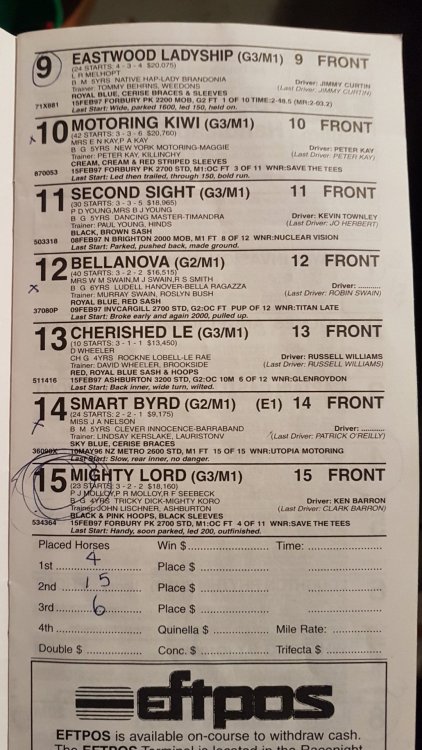 9 EASTWOOD LADYSHIP (G3/M1) 9 FRONT
(24 STARTS: 4 - 3 - 4 $20,075)
L R MELHOPT
B M 5YRS NATIVE HAP-LADY BRANDONIA Driver: JIMMY CURTIN
Trainer: TOMMY BEHRNS, WEEDONS (Last Driver: JIMMY CURTIN)
ROYAL BLUE, CERISE BRACES & SLEEVES
71X881 15FEB97 FORBURY PK 2200 MOB, G2 FT 1 OF 10 TIME:2-48.5 (MR:2-03.2)
Last Start: Wide, parked 1600, led 150, held on.
x 10 MOTORING KIWI (G3/M1) 10 FRONT
(42 STARTS: 3 - 3 - 6 $20,760)
MRS E N KAY,P A KAY
B G 5YRS NEW YORK MOTORING-MAGGIE Driver: PETER KAY
Trainer: PETER KAY, KILLINCHY (Last Driver: PETER KAY)
CREAM, CREAM & RED STRIPED SLEEVES
870053 15FEB97 FORBURY PK 2700 STD, M1:OC FT 3 OF 11 WNR:SAVE THE TEES
Last Start: Led then trailed, through 150, bold run.
11 SECOND SIGHT (G3/M1) 11 FRONT
(30 STARTS: 3 - 5 - 5 $18,965)
P D YOUNG,MRS B J YOUNG
B G 5YRS DANCING MASTER-TIMANDRA Driver: KEVIN TOWNLEY
Trainer: PAUL YOUNG, HINDS (Last Driver: JO HERBERT)
BLACK, BROWN SASH
503318 08FEB97 N BRIGHTON 2000 MOB, M1 FT 8 OF 12 WNR:NUCLEAR VISION
Last Start: Parked, pushed back, made ground.
12 BELLANOVA (G2/M1) 12 FRONT
(40 STARTS: 2 - 3 - 2 $16,515)
MRS W M SWAIN,M J SWAIN,R S SMITH
x B G 6YRS LUDELL HANOVER-BELLA RAGAZZA Driver: ..........
Trainer: MURRAY SWAIN, ROSLYN BUSH (Last Driver: ROBIN SWAIN)
ROYAL BLUE, RED SASH
37080P 09FEB97 INVCARGILL 2700 STD, G2:OC FT PUP OF 12 WNR:TITAN LATE
Last Start: Broke early and again 2000, pulled up.
13 CHERISHED LE (G3/M1) 13 FRONT
(10 STARTS: 3 - 1 - 1 $13,450)
D WHEELER
CH G 4YRS ROCKNE LOBELL-LE RAE Driver: RUSSELL WILLIAMS
Trainer: DAVID WHEELER, BROOKSIDE (Last Driver: RUSSELL WILLIAMS)
RED, ROYAL BLUE SASH & HOOPS
511416 15FEB97 ASHBURTON 3200 STD, G2:OC 10M 6 OF 12 WNR:GLENROYDON
Last Start: Back inner, wide turn, wilted.
14 SMART BYRD (G2/M1) (E1) 14 FRONT
(34 STARTS: 2 - 2 - 1 $9,175)
x MISS J A NELSON
B M 5YRS CLEVER INNOCENCE-BARRABAND Driver: ..........
Trainer: LINDSAY KERSLAKE, LAURISTONV (Last Driver: PATRICK O'REILLY)
SKY BLUE, CERISE BRACES
36090X 10MAY96 NZ METRO 2600 STD, M1 FT 15 OF 15 WNR:UTOPIA MOTORING
Last Start: Slow, rear inner, no danger.
15 MIGHTY LORD (G3/M1) 15 FRONT
(23 STARTS: 3 - 2 - 2 $18,160)
P J MOLLOY,P R MOLLOY,R F SEEBECK
B G 4YRS TRICKY DICK-MIGHTY KORO Driver: KEN BARRON
Trainer: JOHN LISCHNER, ASHBURTON (Last Driver: CLARK BARRON)
BLACK & PINK HOOPS, BLACK SLEEVES
534364 15FEB97 FORBURY PK 2700 STD, M1:OC FT 4 OF 11 WNR:SAVE THE TEES
Last Start: Handy, soon parked, led 200, outfinished.
Placed Horses Win $ .................... Time: ....................
1st 4 Place $ ....................
2nd 15 Place $ ....................
3rd 6 Place $ ....................
4th .................... Quinella $ .................... Mile Rate: ....................
Double $ .................... Conc. $ .................... Trifecta $ ....................
eftpos
EFTPOS is available on-course to withdraw cash.
The EFTPOS Terminal is located in the Racenight